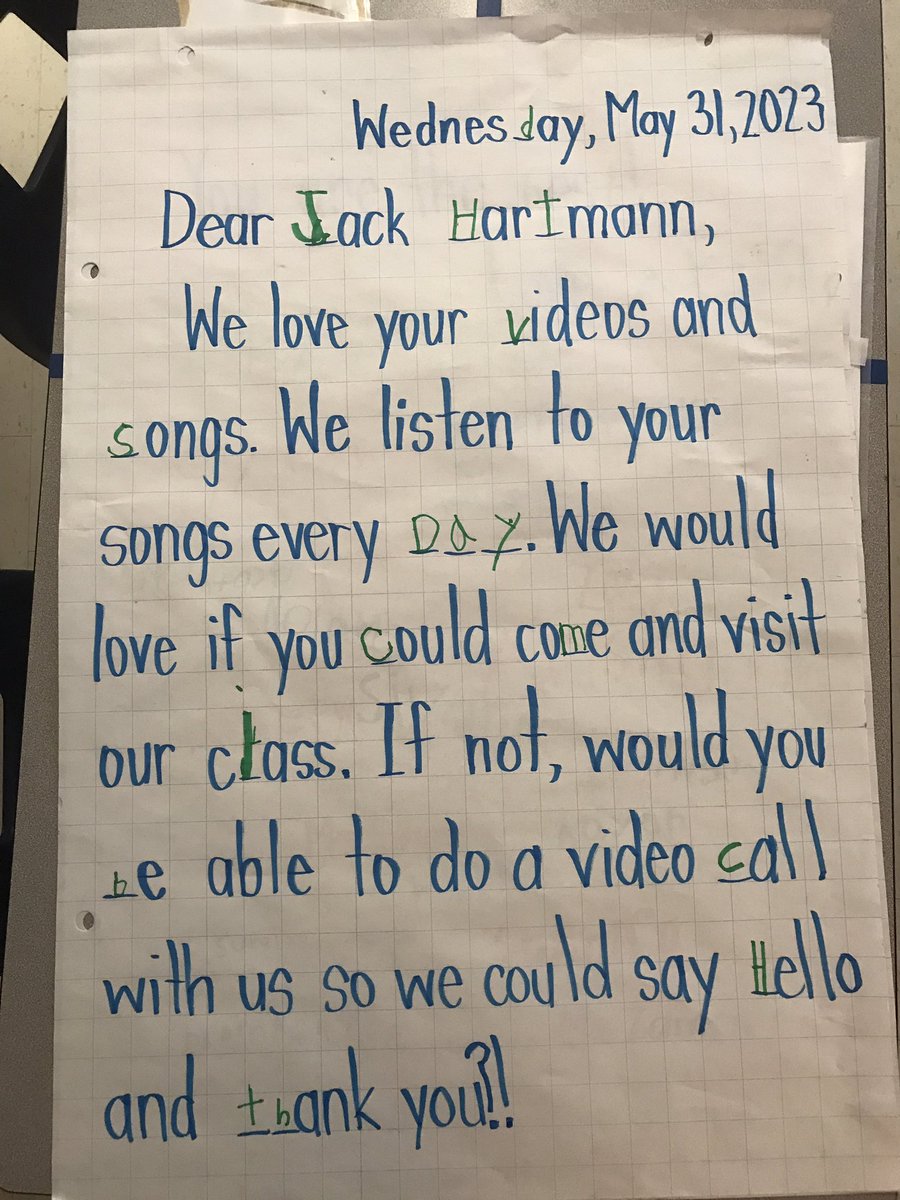 Wednesday, May 31, 2023
Dear Jack Hartmann,
We love your videos and
songs. We listen to your
songs every DAy. We would
love if you could come and visit
our class. If not, would you
be able to do a video call
with us so we could say Hello
and thank you?!!